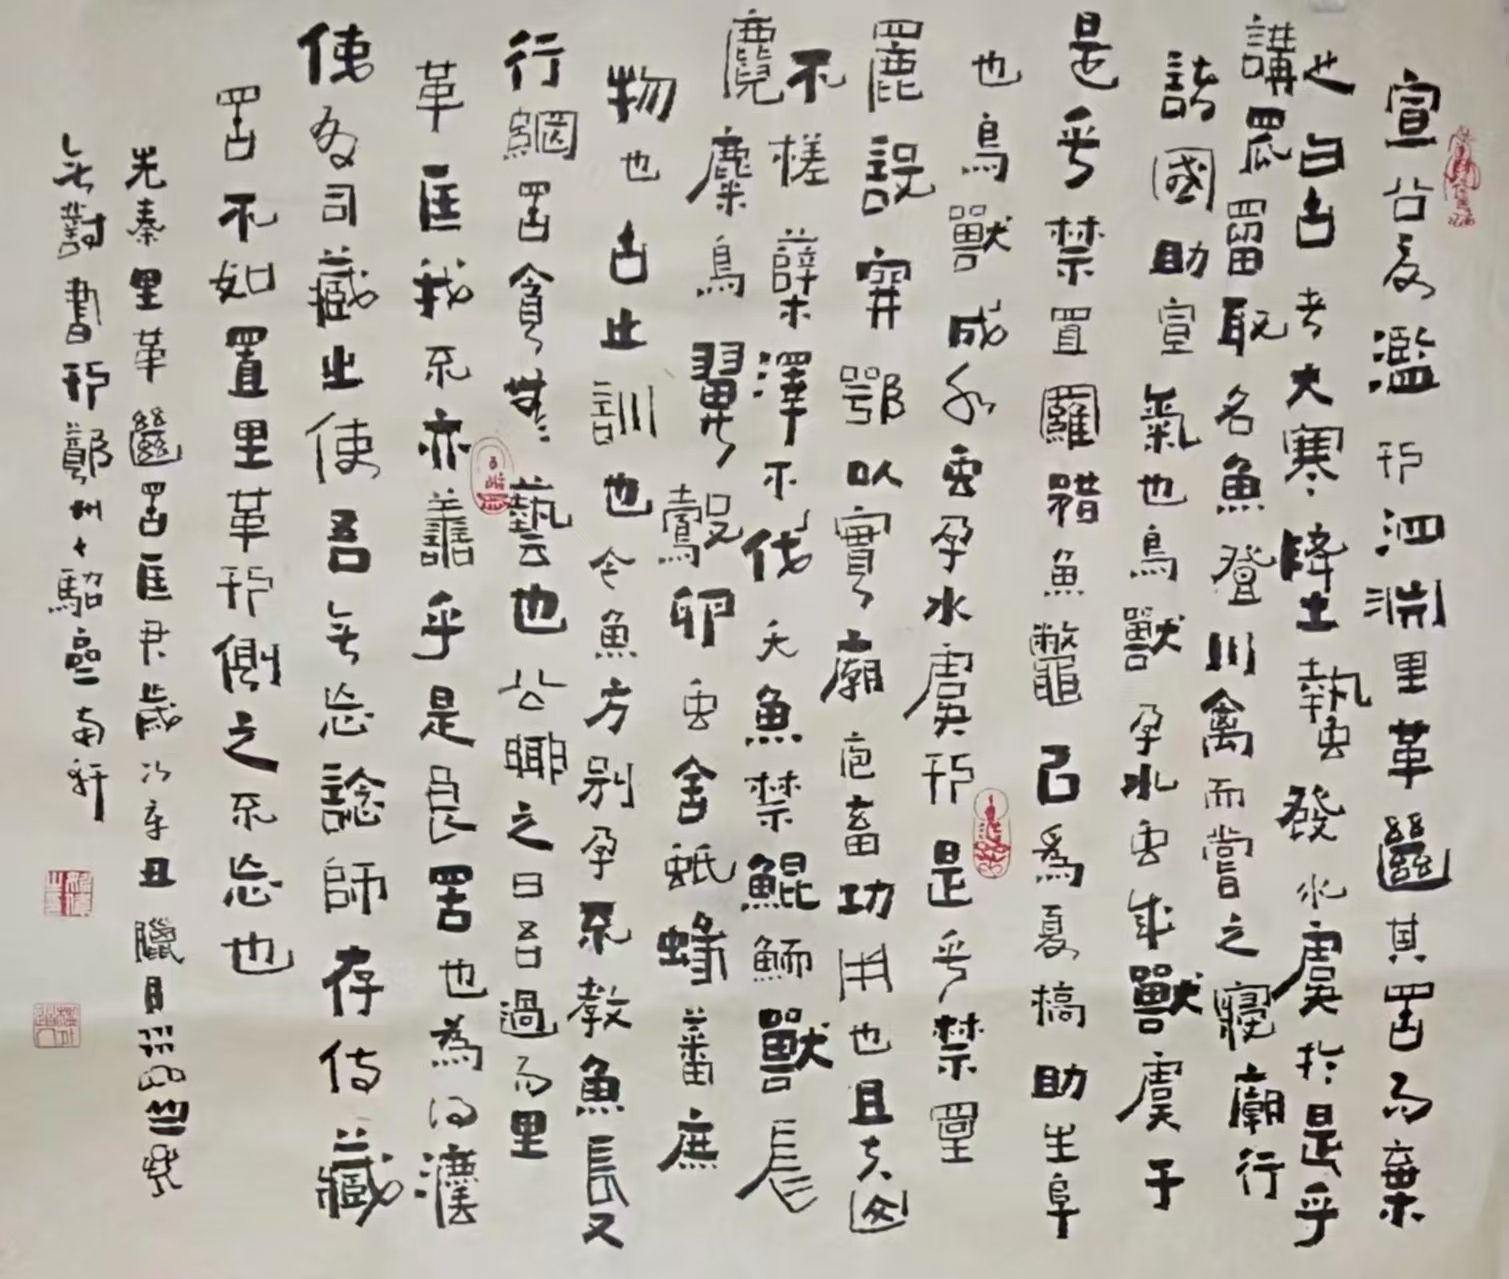 宣公夏濫於泗淵里革斷其罟而棄
之曰古者大寒降土蟄發水虞於是乎
講罛罶取名魚登川禽而嘗之寢廟行
諸國助宣氣也鳥獸孕水蟲成獸虞于
是乎禁罝羅矠魚鱉以爲夏槁助生阜
也鳥獸成水蟲孕水虞於是乎禁罜
麗設穽鄂以實廟庖畜功用也且夫山
不槎蘖澤不伐夭魚禁鯤鮞獸長
麑麌鳥翼鷇卵蟲舍蚳蝝蕃庶
物也古之訓也今魚方別孕不教魚長又
行網罟貪無藝也公聞之曰吾過而里
革匡我不亦善乎是良罟也為得灋
使有司藏之使吾無忘諗師存侍藏
罟不如置里革於側之不忘也
先秦里革斷罟匡君歲次辛丑臘月
無對書於鄭州七南軒